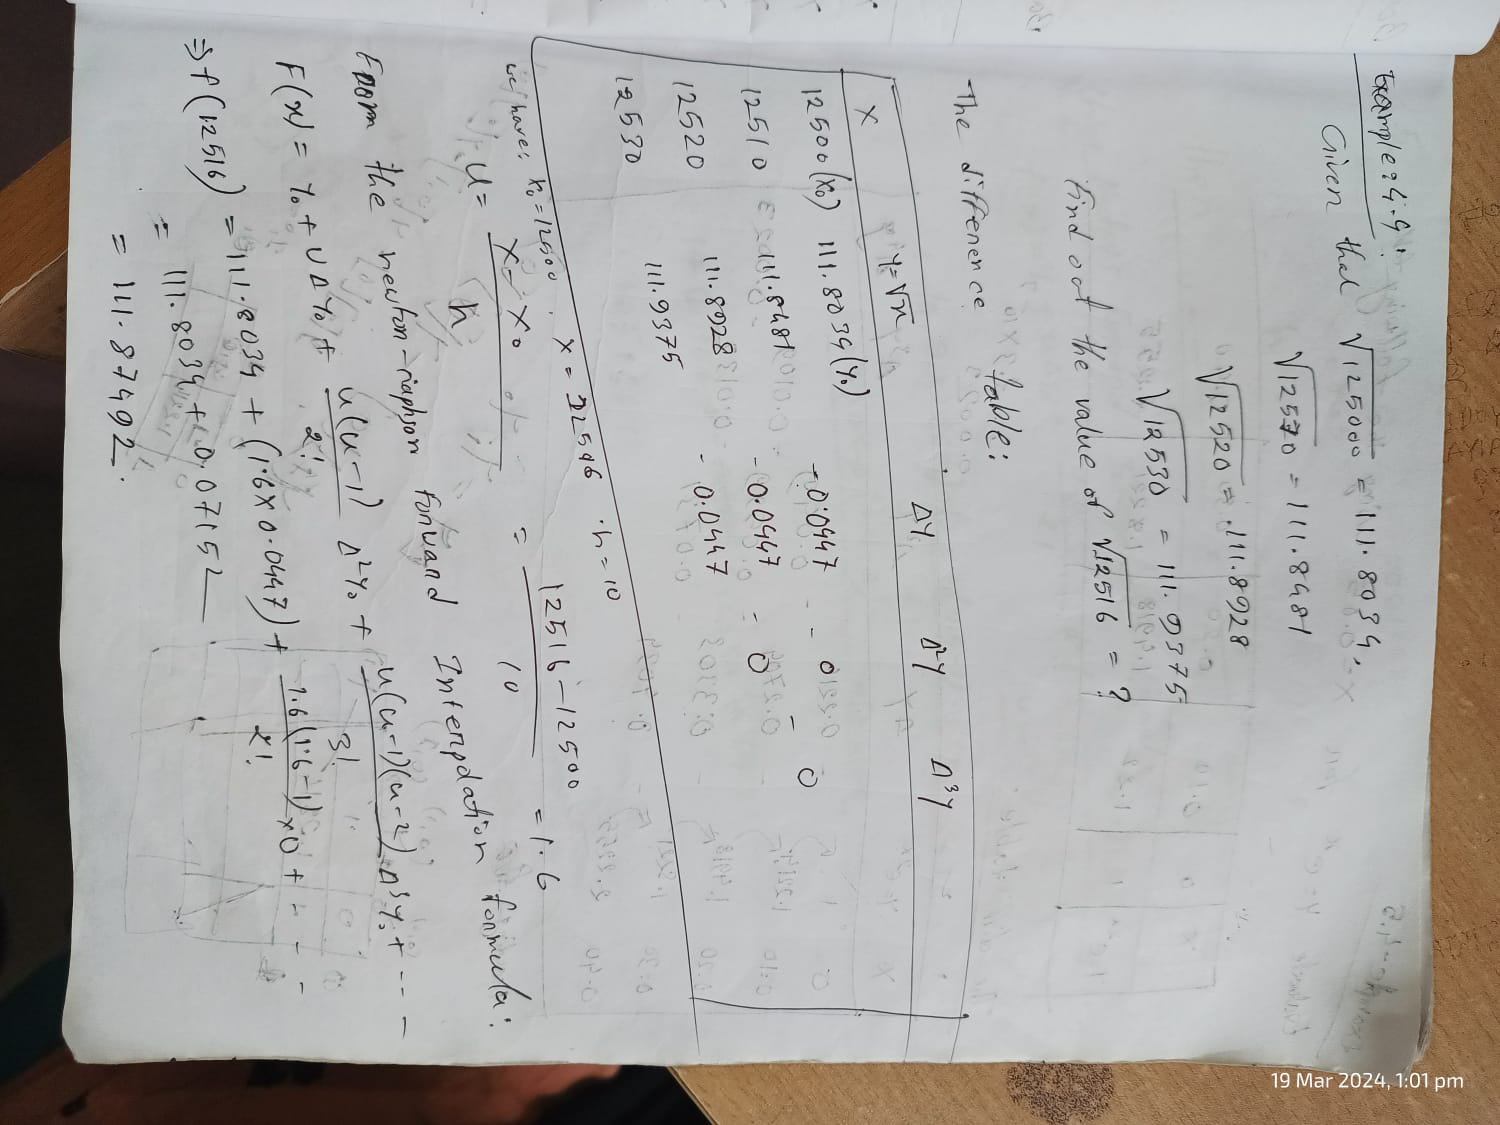 Example: 4.4:
Given that √12500 = 111.8034.
√12510 = 111.8481
√12520 = 111.8928
√12530 = 111.9375
Find out the value of √12516 = ?
The difference table:
X y=√x Δy Δ²y Δ³y
12500 (x₀) 111.8034 (y₀)
-0.0447 - 0
12510 111.8481 - 0
-0.0447 = 0
12520 111.8928
-0.0447
12530 111.9375
we have: x₀ = 12500, x = 12516 h = 10
u = x - x₀ / h = 12516 - 12500 / 10 = 1.6
From the newton-raphson forward Interpolation formula:
F(x) = y₀ + uΔy₀ + u(u-1)/2! Δ²y₀ + u(u-1)(u-2)/3! Δ³y₀ + ---
⇒ f(12516) = 111.8034 + (1.6×0.0447) + 1.6(1.6-1)/2! ×0 + - - -
= 111.8034 + 0.07152
= 111.87492.
19 Mar 2024, 1:01 pm